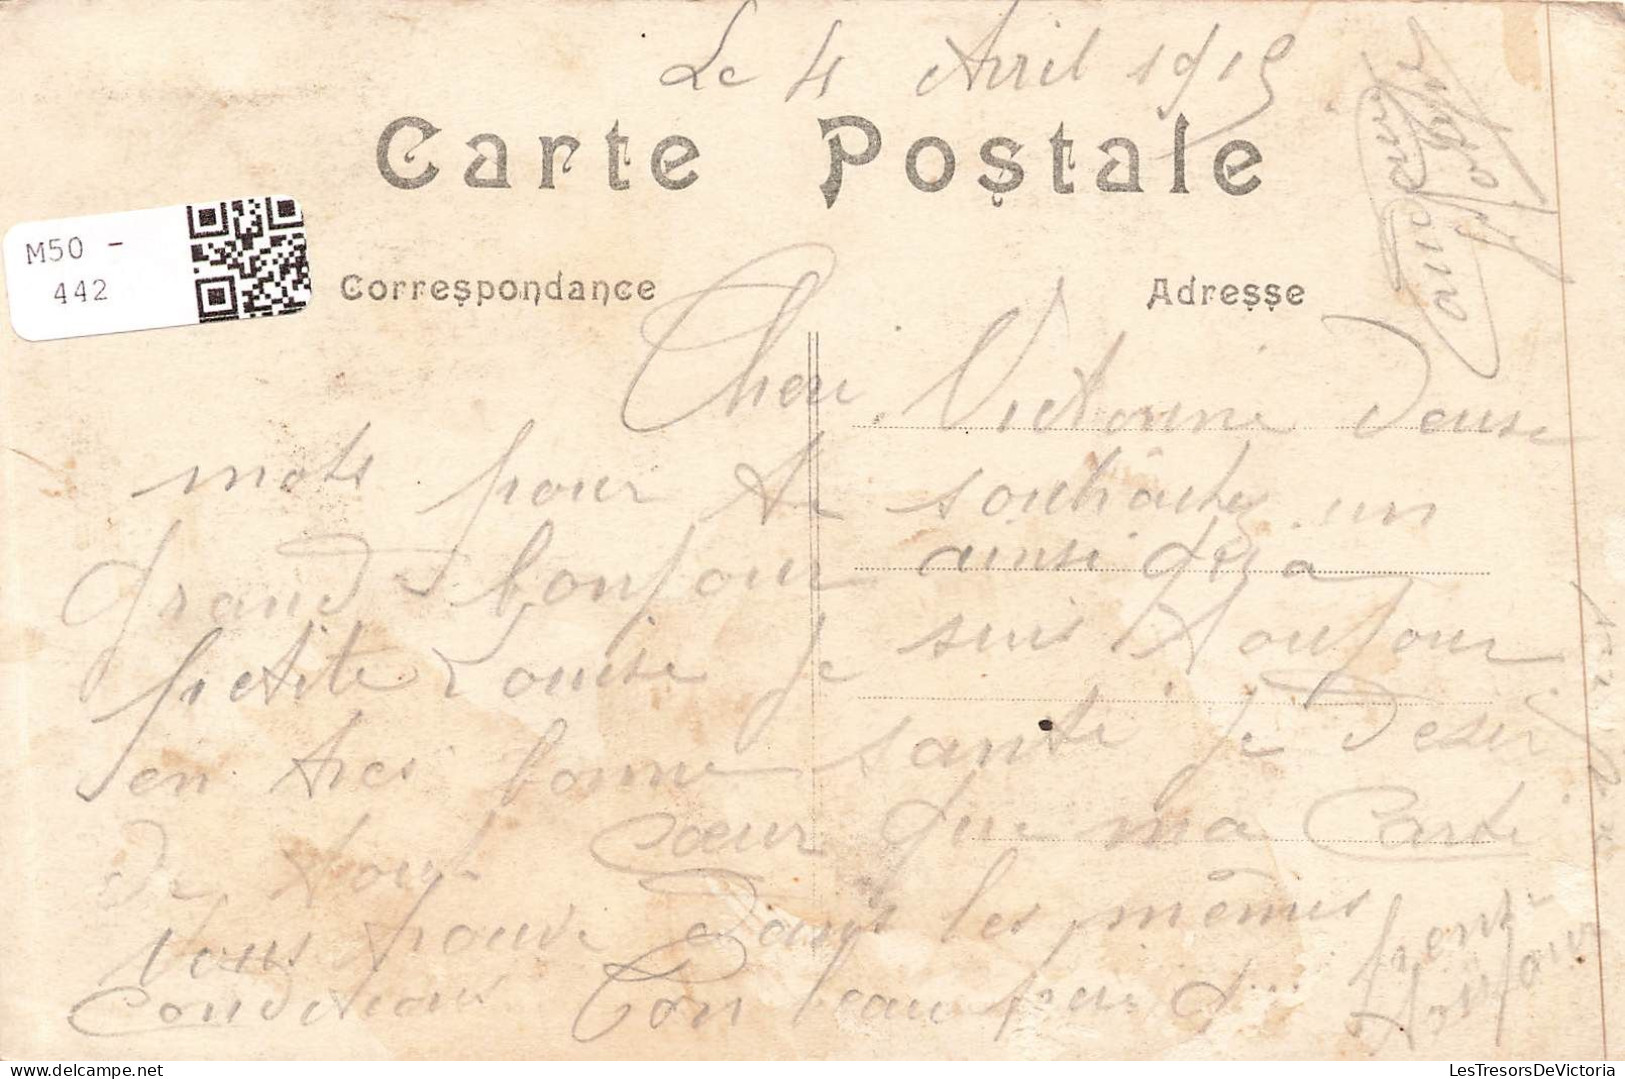 Le 4 Avril 1915
Carte Postale
M50 -
442
Correspondance
Adresse
Cheri Victorine deuse
mots pour te souhaitez un
grand bonjour ainsi qeza
petite Louise je suis toujour
en tres bonne santé je desir
de tout cœur que ma Carte
vous trouve dans les mêmes
Conditions Ton beau frere d...
toujour
LesTresorsDeVictoria